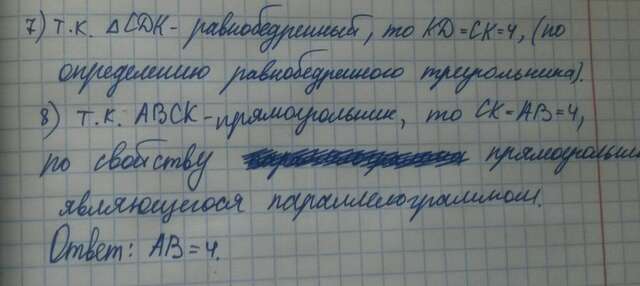 7) т.к. △CDK - равнобедренный, то KD=CK=4, (по
определению равнобедренного треугольника).
8) т.к. ABCK - прямоугольник, то CK=AB=4,
по свойству прямоугольни
являющегося параллелограммом.
Ответ: AB=4.